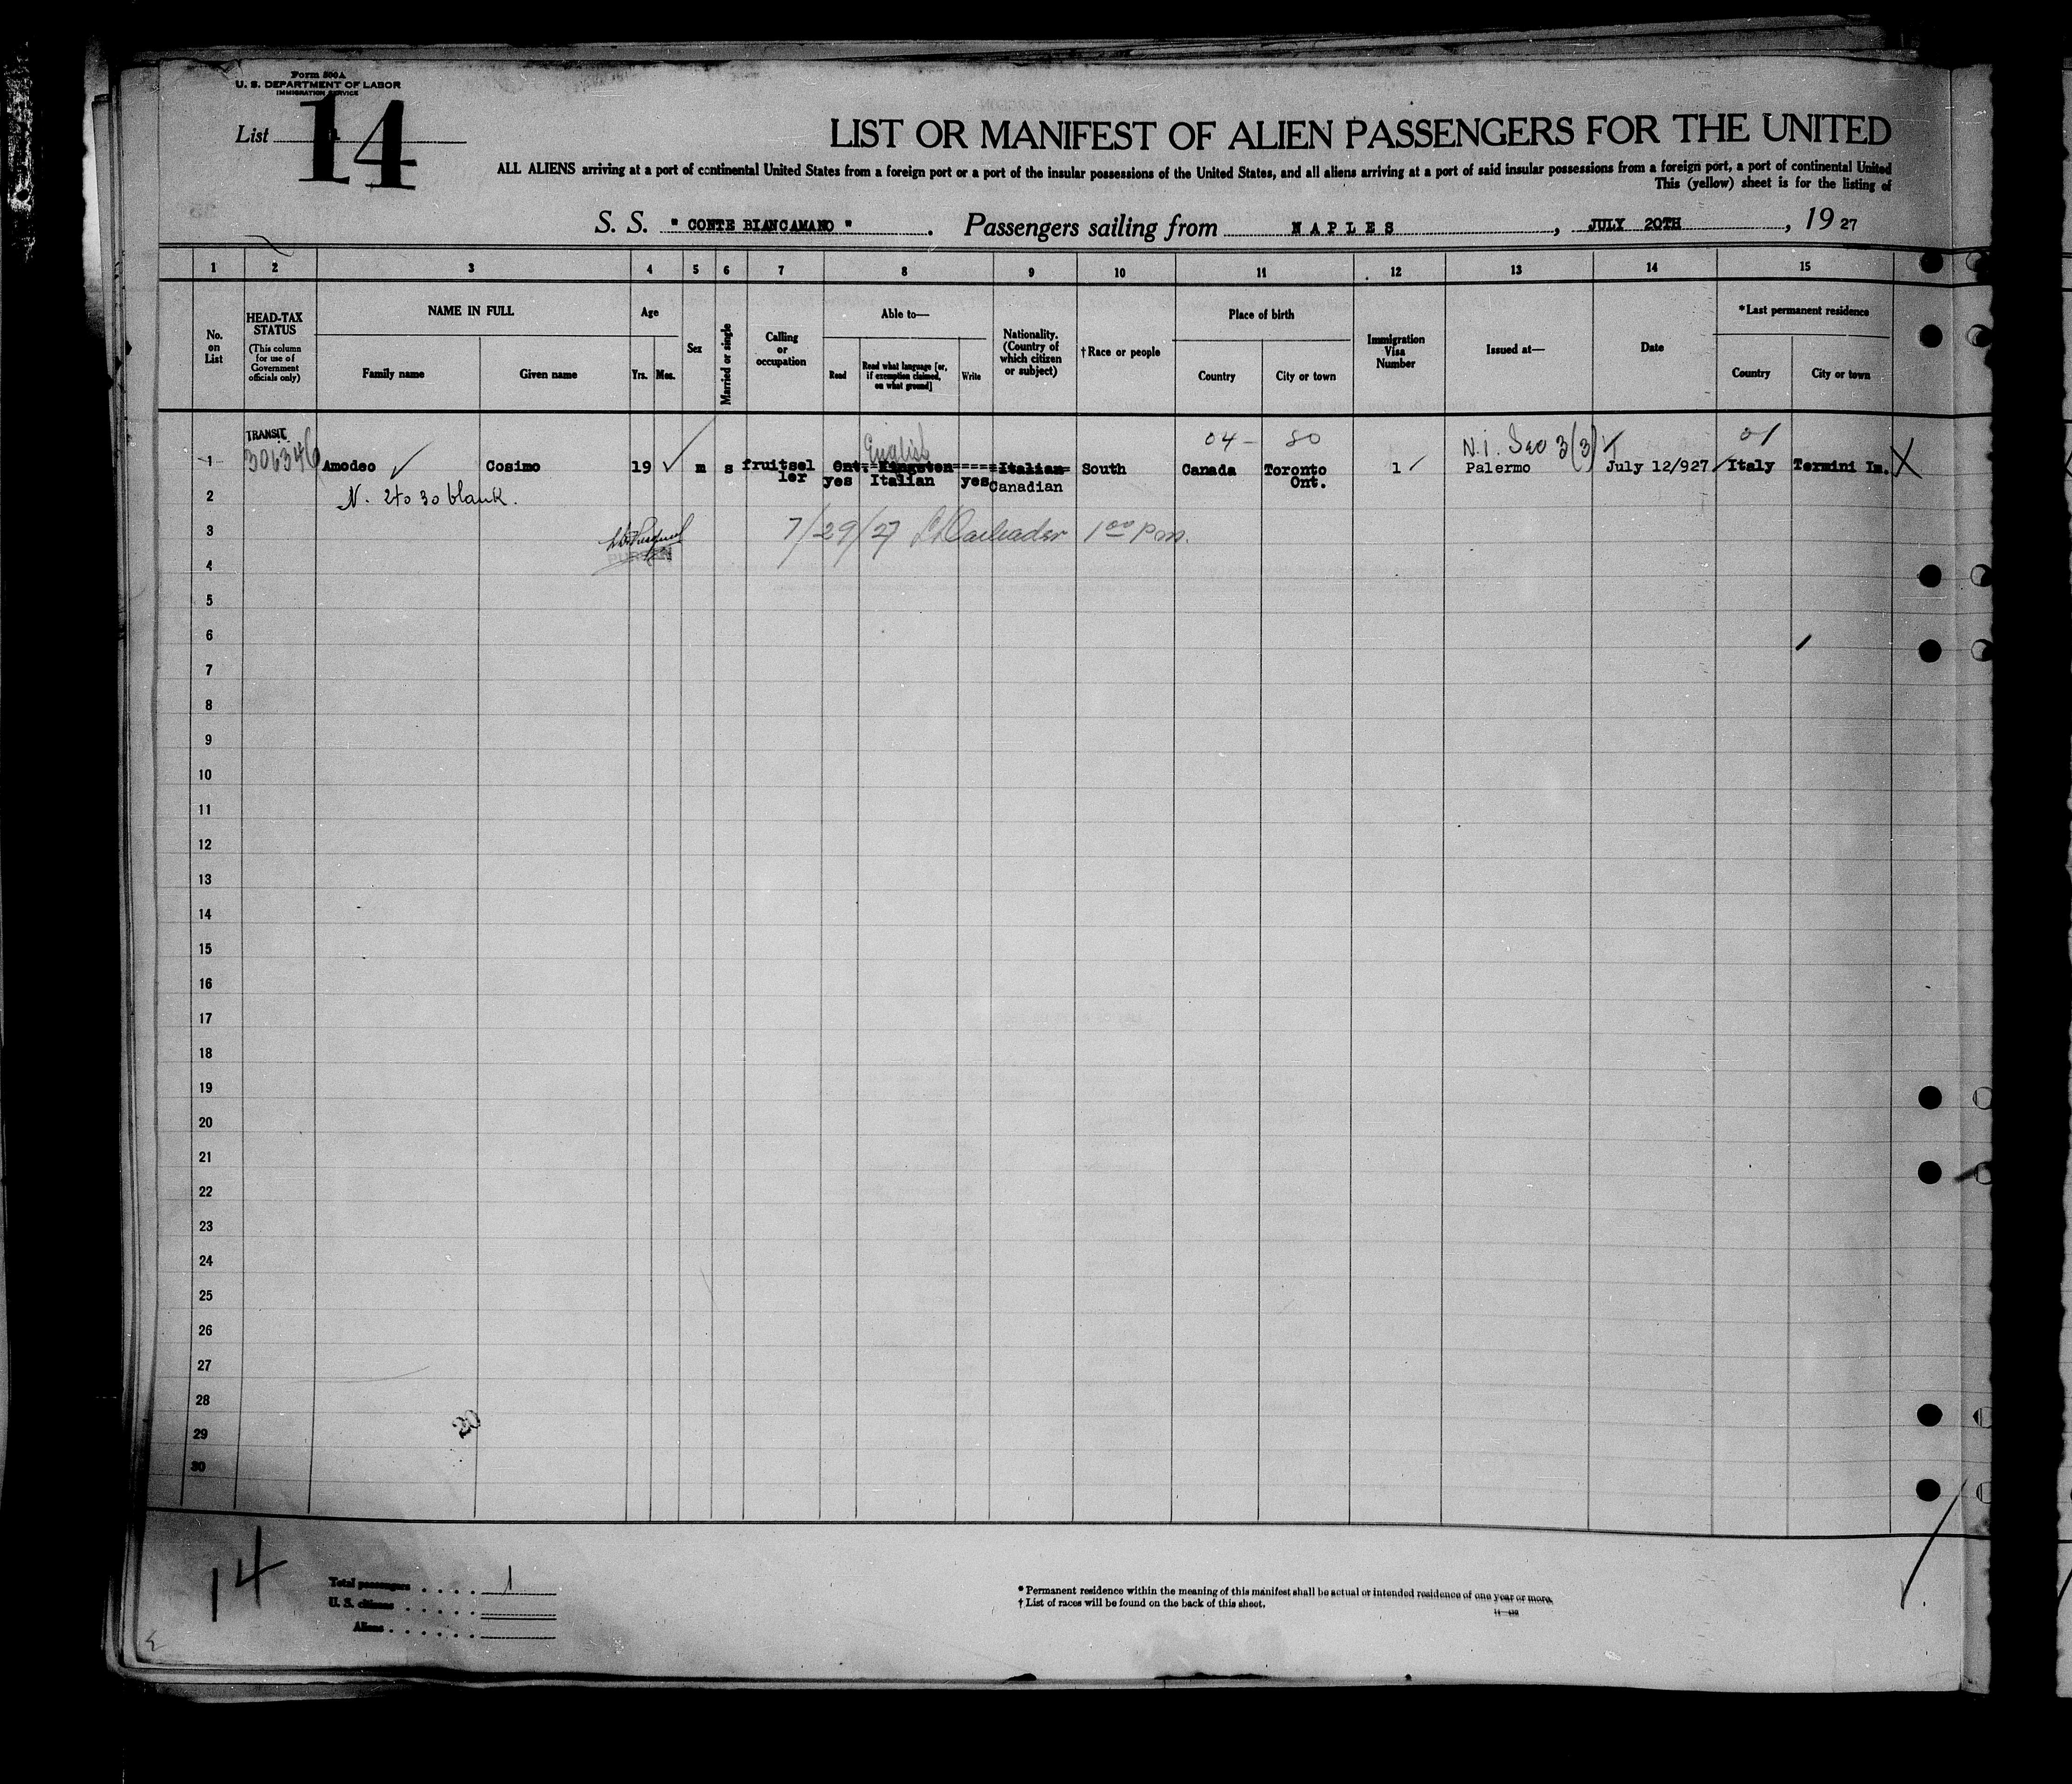 Form 500A
U. S. DEPARTMENT OF LABOR
IMMIGRATION SERVICE
List 14
LIST OR MANIFEST OF ALIEN PASSENGERS FOR THE UNITED
ALL ALIENS arriving at a port of continental United States from a foreign port or a port of the insular possessions of the United States, and all aliens arriving at a port of said insular possessions from a foreign port, a port of continental United
This (yellow) sheet is for the listing of
S. S. " CONTE BIANCAMANO " . Passengers sailing from NAPLES , JULY 20TH , 19 27
1 2 3 4 5 6 7 8 9 10 11 12 13 14 15
No. on List
HEAD-TAX STATUS
(This column for use of Government officials only)
NAME IN FULL
Family name
Given name
Age
Yrs.
Mos.
Sex
Married or single
Calling or occupation
Able to—
Read
Read what language [or, if exemption claimed, on what ground]
Write
Nationality. (Country of which citizen or subject)
†Race or people
Place of birth
Country
City or town
Immigration Visa Number
Issued at—
Date
*Last permanent residence
Country
City or town
TRANSIT
English
04 - 80
N.I. Sec 3(3)
01
1 306346 Amodeo Cosimo 19 m s fruitsel Ont. Kingston ==== Italian South Canada Toronto 1 Palermo July 12/927 Italy Termini Im. X
ler yes Italian yes Canadian Ont.
2 N. 2 to 30 blank.
3 7/29/27 1 00 Pm.
4
5
6
7
8
9
10
11
12
13
14
15
16
17
18
19
20
21
22
23
24
25
26
27
28
29
30
14
Total passengers . . . . 1
U. S. citizens . . . . .
Aliens . . . . . .
* Permanent residence within the meaning of this manifest shall be actual or intended residence of one year or more.
† List of races will be found on the back of this sheet.